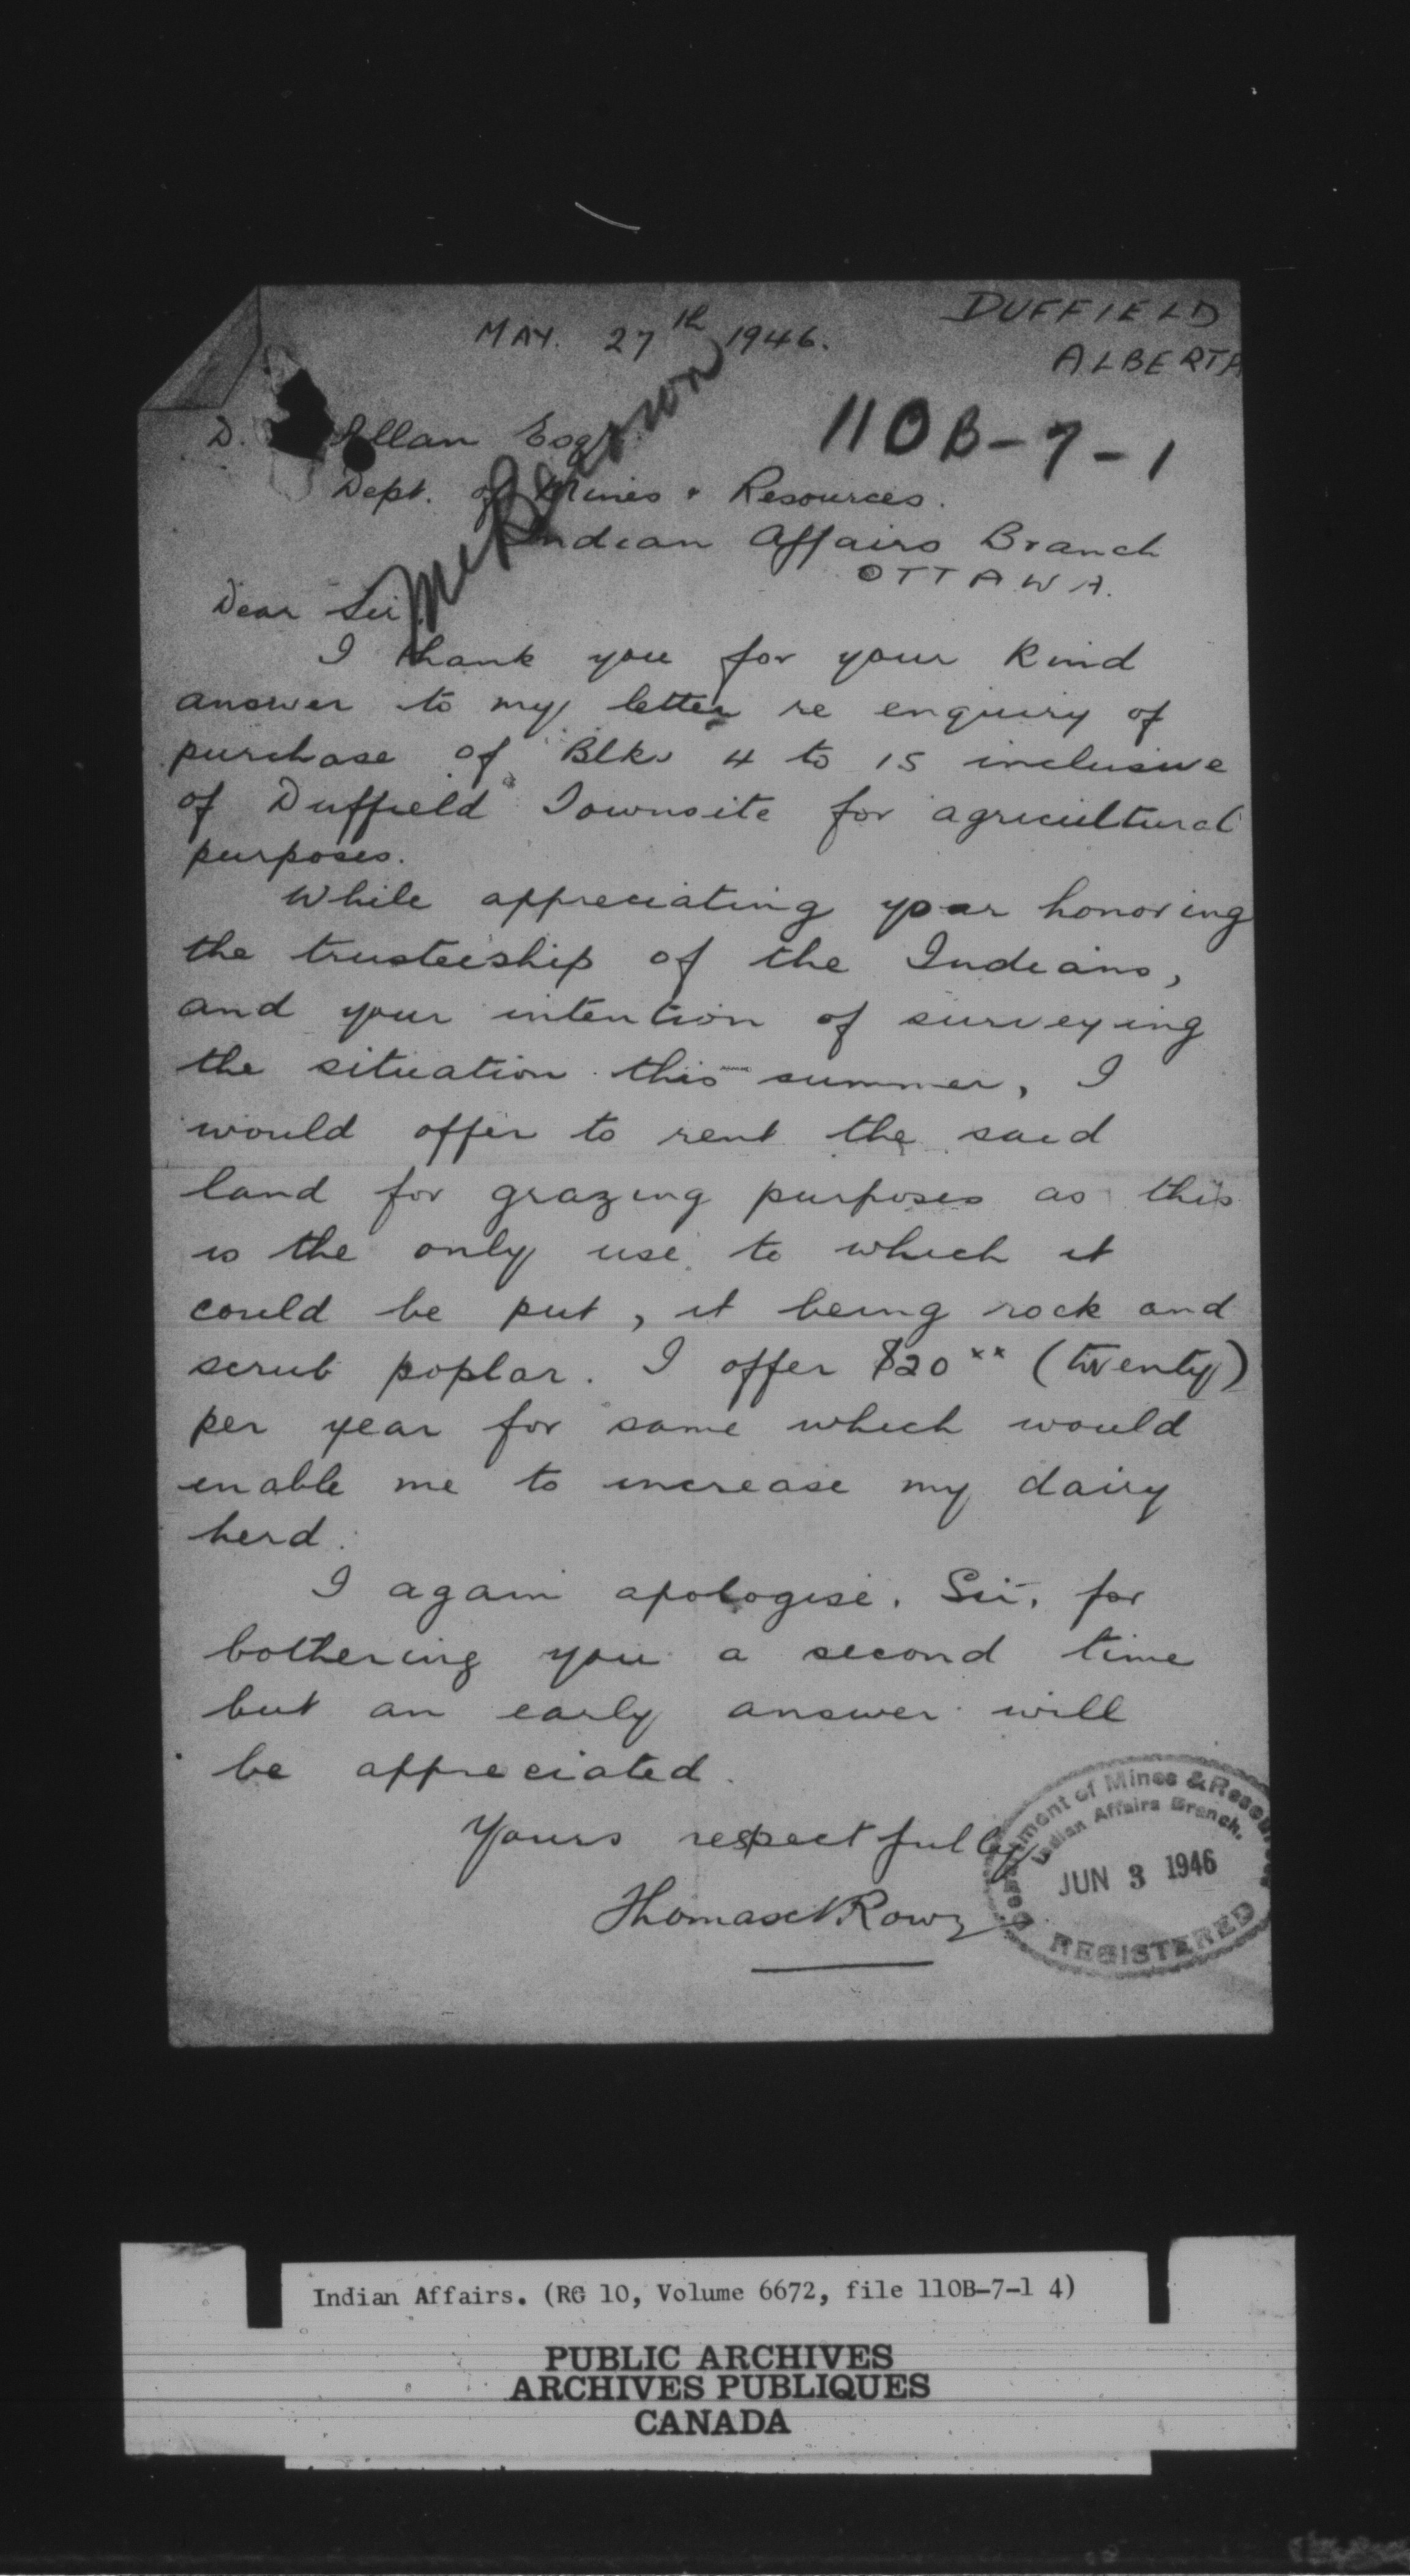 DUFFIELD
MAY. 27th 1946.
ALBERTA
110B-7-1
D. Allan Esqr.
Dept. of Mines & Resources.
Indian Affairs Branch
OTTAWA.
Dear Sir
I thank you for your kind
answer to my letter re enquiry of
purchase of Blks 4 to 15 inclusive
of Duffield Townsite for agricultural
purposes.
While appreciating your honoring
the trusteeship of the Indians,
and your intention of surveying
the situation this summer, I
would offer to rent the said
land for grazing purposes as this
is the only use to which it
could be put, it being rock and
scrub poplar. I offer $20 xx (twenty)
per year for same which would
enable me to increase my dairy
herd.
I again apologise, Sir, for
bothering you a second time
but an early answer will
be appreciated.
Yours respectfully
Thomas
Department of Mines & Resources
Indian Affairs Branch.
JUN 3 1946
REGISTERED
Indian Affairs. (RG 10, Volume 6672, file 110B-7-1 4)
PUBLIC ARCHIVES
ARCHIVES PUBLIQUES
CANADA